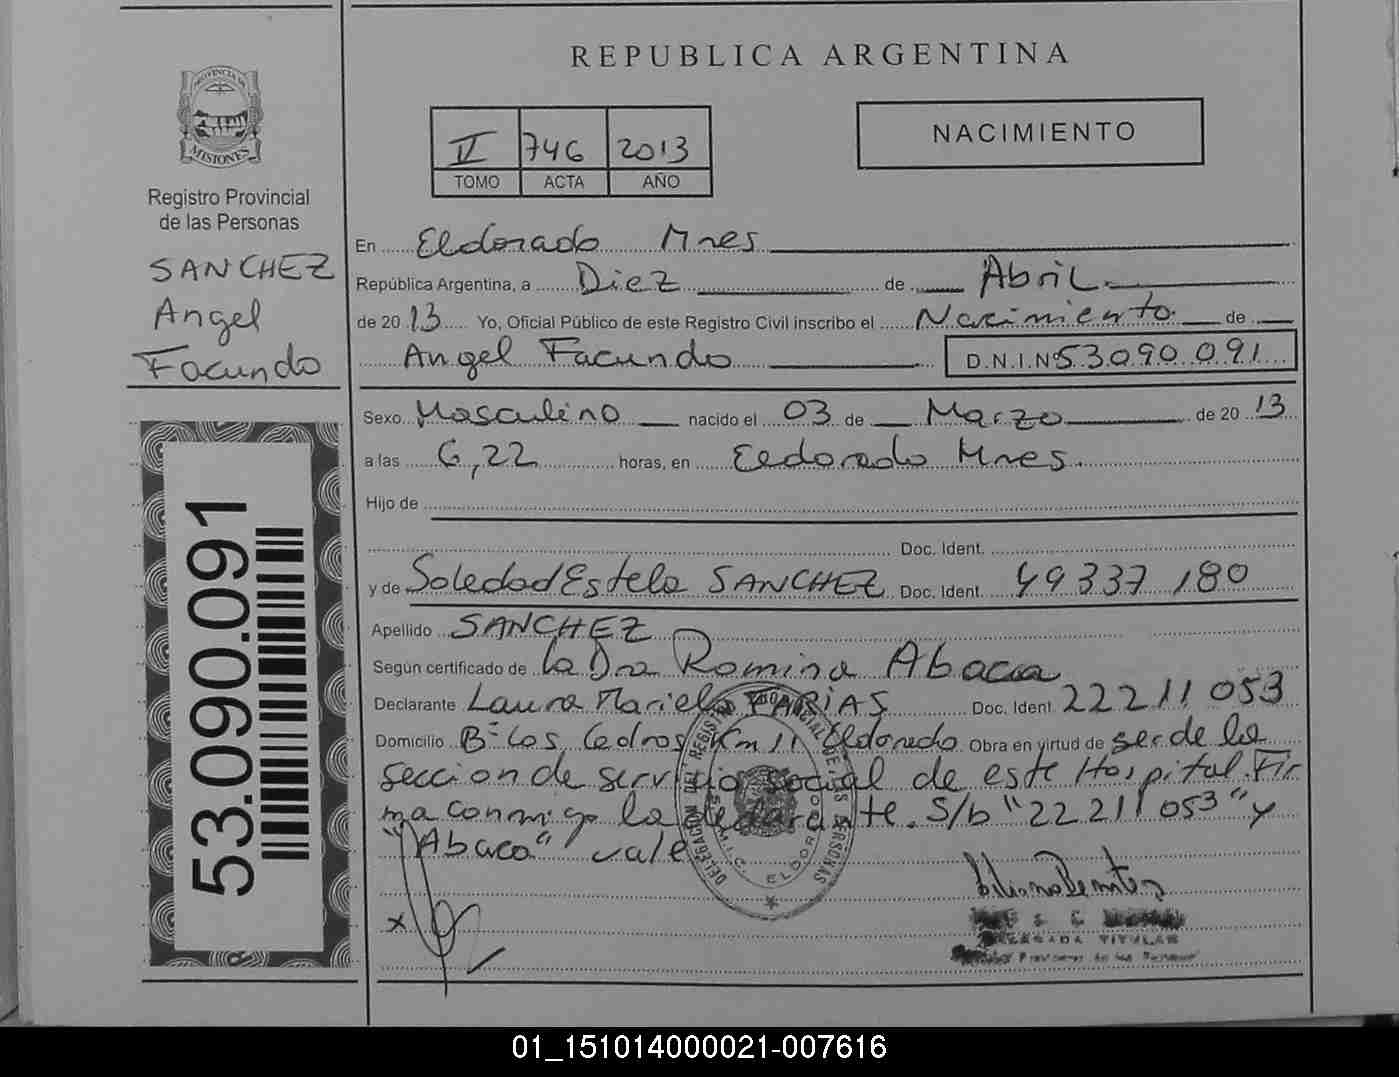 REPUBLICA ARGENTINA
PROVINCIA DE
MISIONES
Registro Provincial
de las Personas
SANCHEZ
Angel
Facundo
53.090.091
II 746 2013
TOMO ACTA AÑO
NACIMIENTO
En Eldorado Mnes
República Argentina, a Diez de Abril
de 2013 Yo, Oficial Público de este Registro Civil inscribo el Nacimiento de
Angel Facundo D.N.I.Nº 53.090.091
Sexo Masculino nacido el 03 de Marzo de 2013
a las 6,22 horas, en Eldorado Mnes.
Hijo de
Doc. Ident.
y de Soledad Estela SANCHEZ Doc. Ident. 49337180
Apellido SANCHEZ
Según certificado de la Dra Romina Abaca
Declarante Laura Mariela FARIAS Doc. Ident. 22211053
Domicilio Bº Los Cedros Km 11 Eldorado Obra en virtud de ser de la
seccion de servicio social de este Hospital. Fir
ma conmigo la declarante. S/b "22211053" y
"Abaca" vale
DELEGACION DEL REGISTRO PROVINCIAL DE LAS PERSONAS
ELDORADO
Liliana Benitez
DELEGADA TITULAR
Provincial de las Personas
01_151014000021-007616